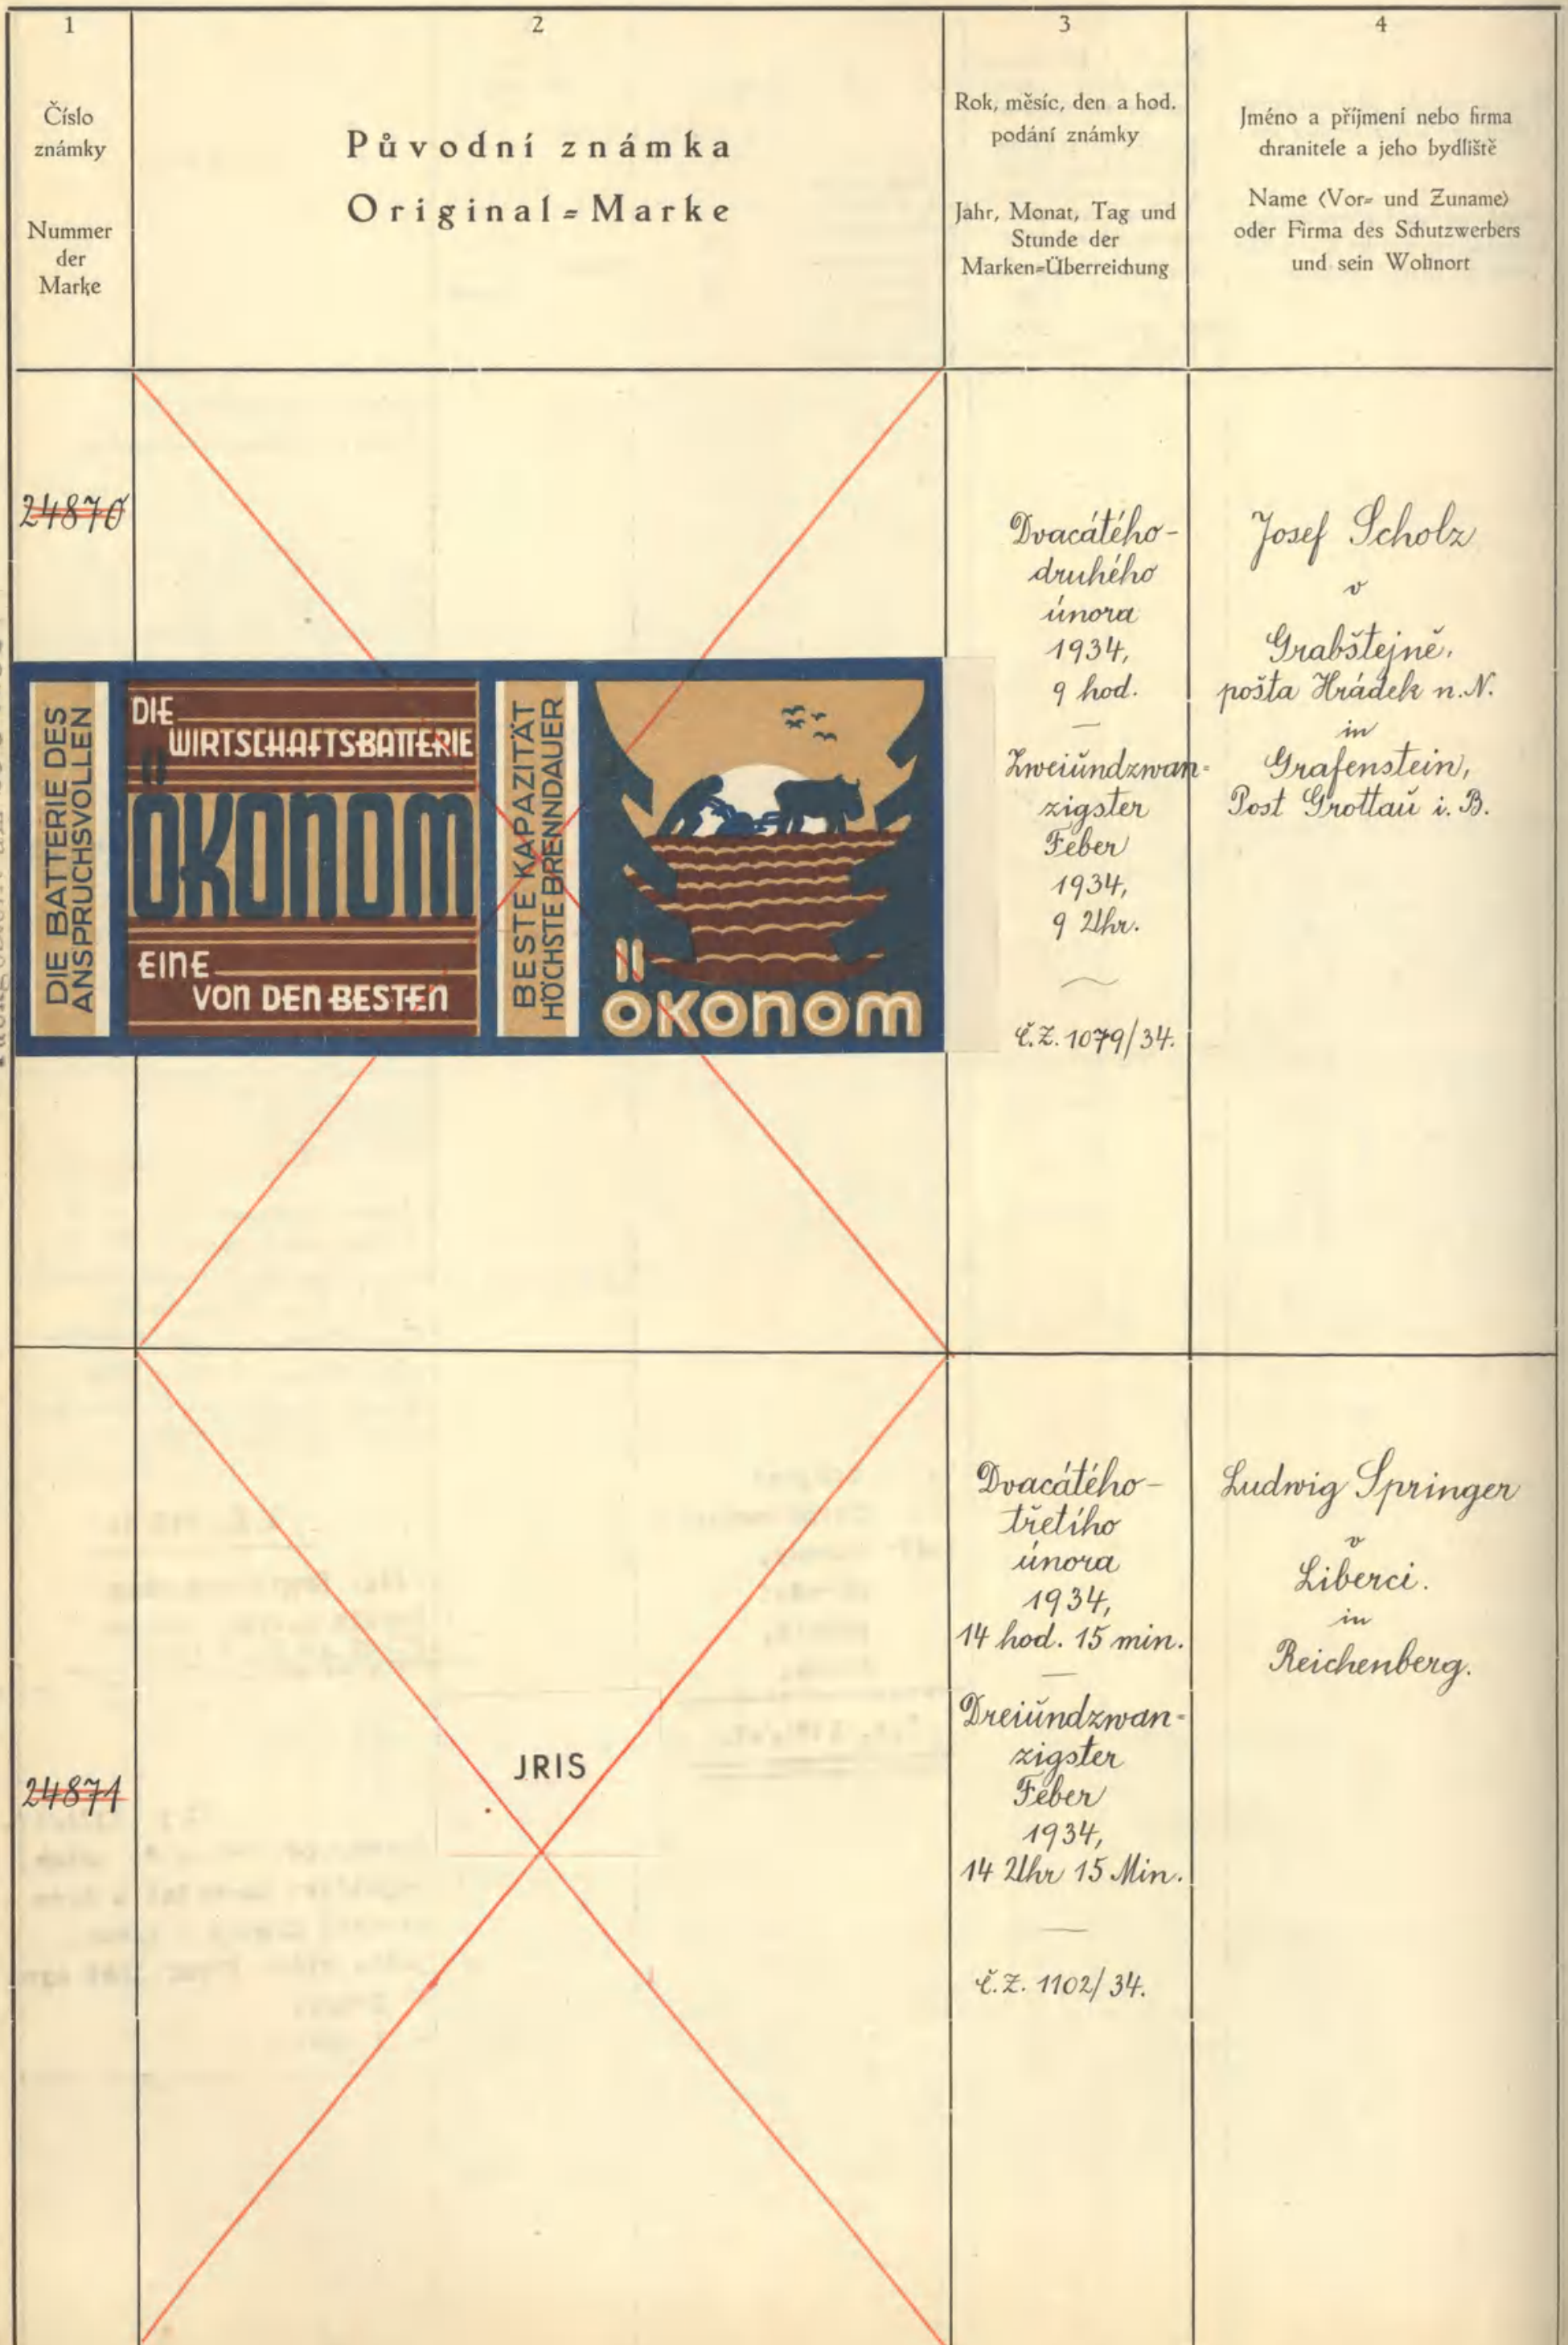 1
Číslo
známky
Nummer
der
Marke
2
Původní známka
Original=Marke
3
Rok, měsíc, den a hod.
podání známky
Jahr, Monat, Tag und
Stunde der
Marken=Überreichung
4
Jméno a příjmení nebo firma
chranitele a jeho bydliště
Name (Vor= und Zuname)
oder Firma des Schutzwerbers
und sein Wohnort
24870
DIE BATTERIE DES
ANSPRUCHSVOLLEN
DIE
WIRTSCHAFTSBATTERIE
ÖKONOM
EINE
VON DEN BESTEN
BESTE KAPAZITÄT
HÖCHSTE BRENNDAUER
ÖKONOM
Dvacátého-
druhého
února
1934,
9 hod.
Zweiundzwan=
zigster
Feber
1934,
9 Uhr.
Č.Z. 1079/34.
Josef Scholz
v
Grabštejně,
pošta Hrádek n.N.
in
Grafenstein,
Post Grottau i. B.
24871
JRIS
Dvacátého-
třetího
února
1934,
14 hod. 15 min.
Dreiundzwan=
zigster
Feber
1934,
14 Uhr 15 Min.
Č.Z. 1102/34.
Ludwig Springer
v
Liberci.
in
Reichenberg.